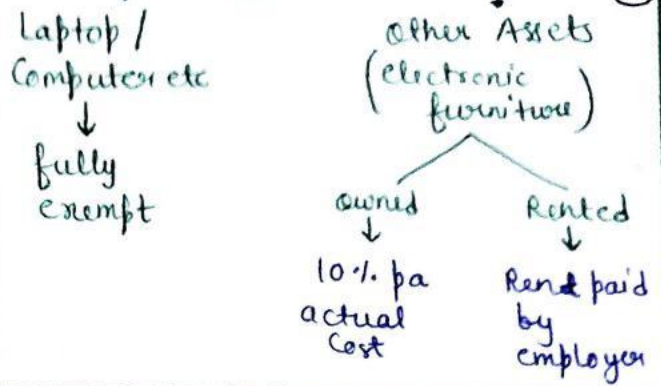 Laptop /
Computer etc
↓
fully
exempt
Other Assets
(electronic
furniture)
Owned
↓
10% pa
actual
Cost
Rented
↓
Rent paid
by
employer